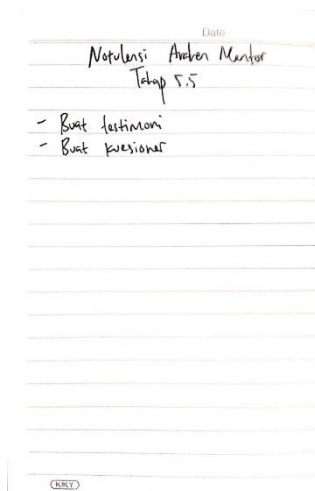 Date
Notulensi Arahan Mentor
Tahap 5.5
- Buat testimoni
- Buat kuesioner
KKY